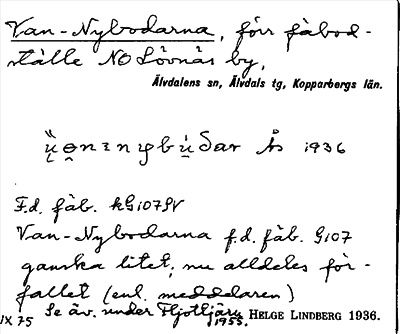 Van-Nybodarna, förr fäbod-
ställe NO Lövnäs by,
Älvdalens sn, Älvdals tg, Kopparbergs län.
Ås 1936
F.d. fäb. kG107SV
Van-Nybodarna f.d. fäb. G107
ganska litet, nu alldeles för-
fallet (enl. meddelaren)
Se äv. under
HELGE LINDBERG 1936.
IX 75
1955.